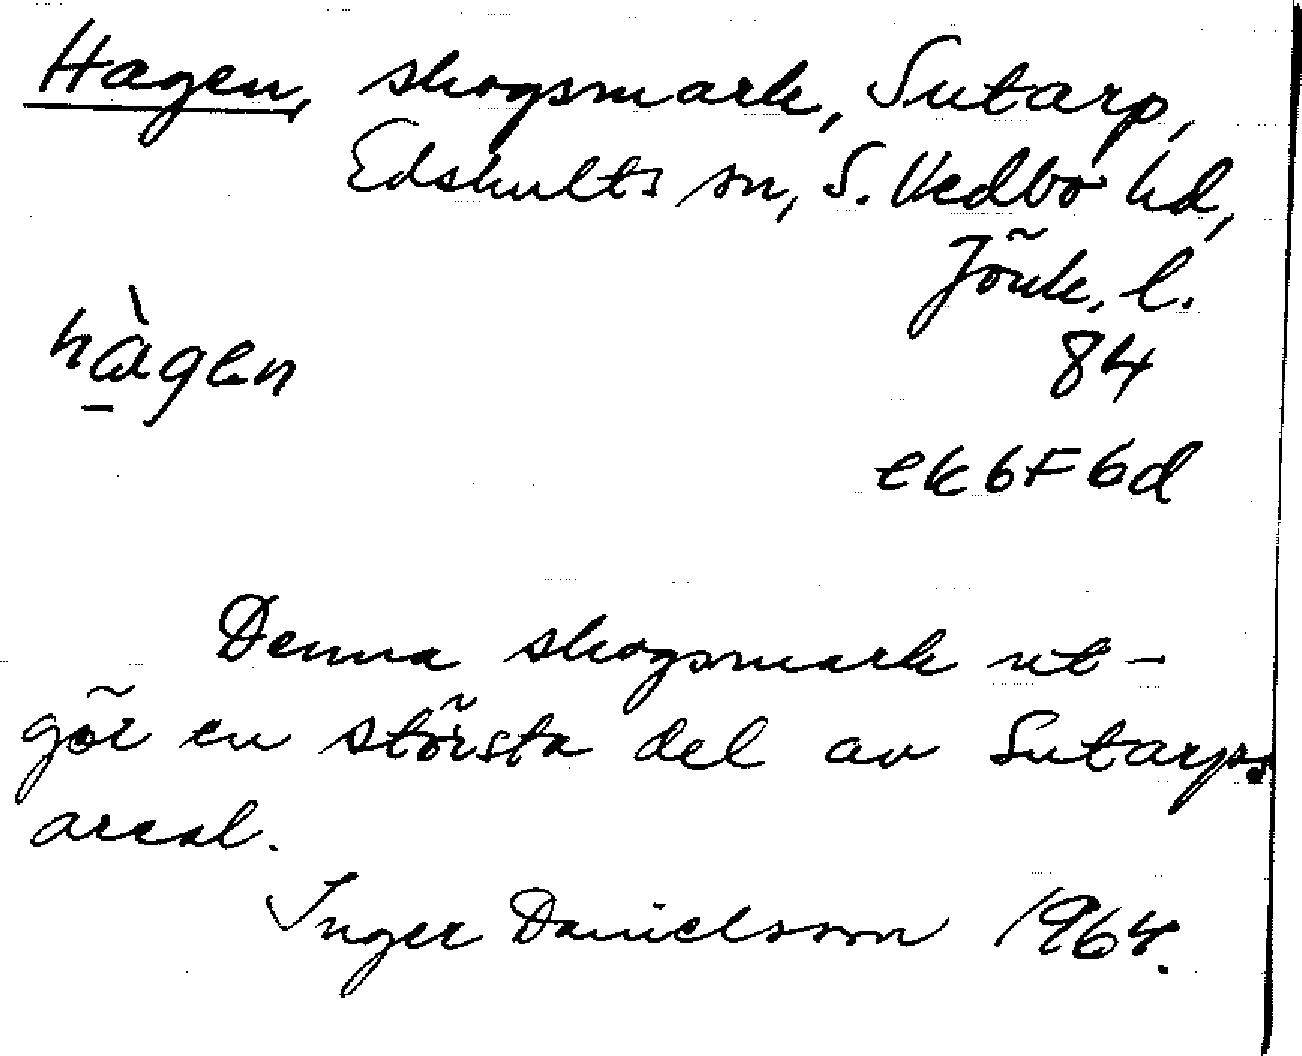 Hagen, skogsmark, Sutarp,
Edshults sn, S. Vedbo hd,
Jönk. l.
hàgen
84
ek 6F6d
Denna skogsmark ut-
gör en största del av Sutarps
areal.
Inger Danielsson 1964.